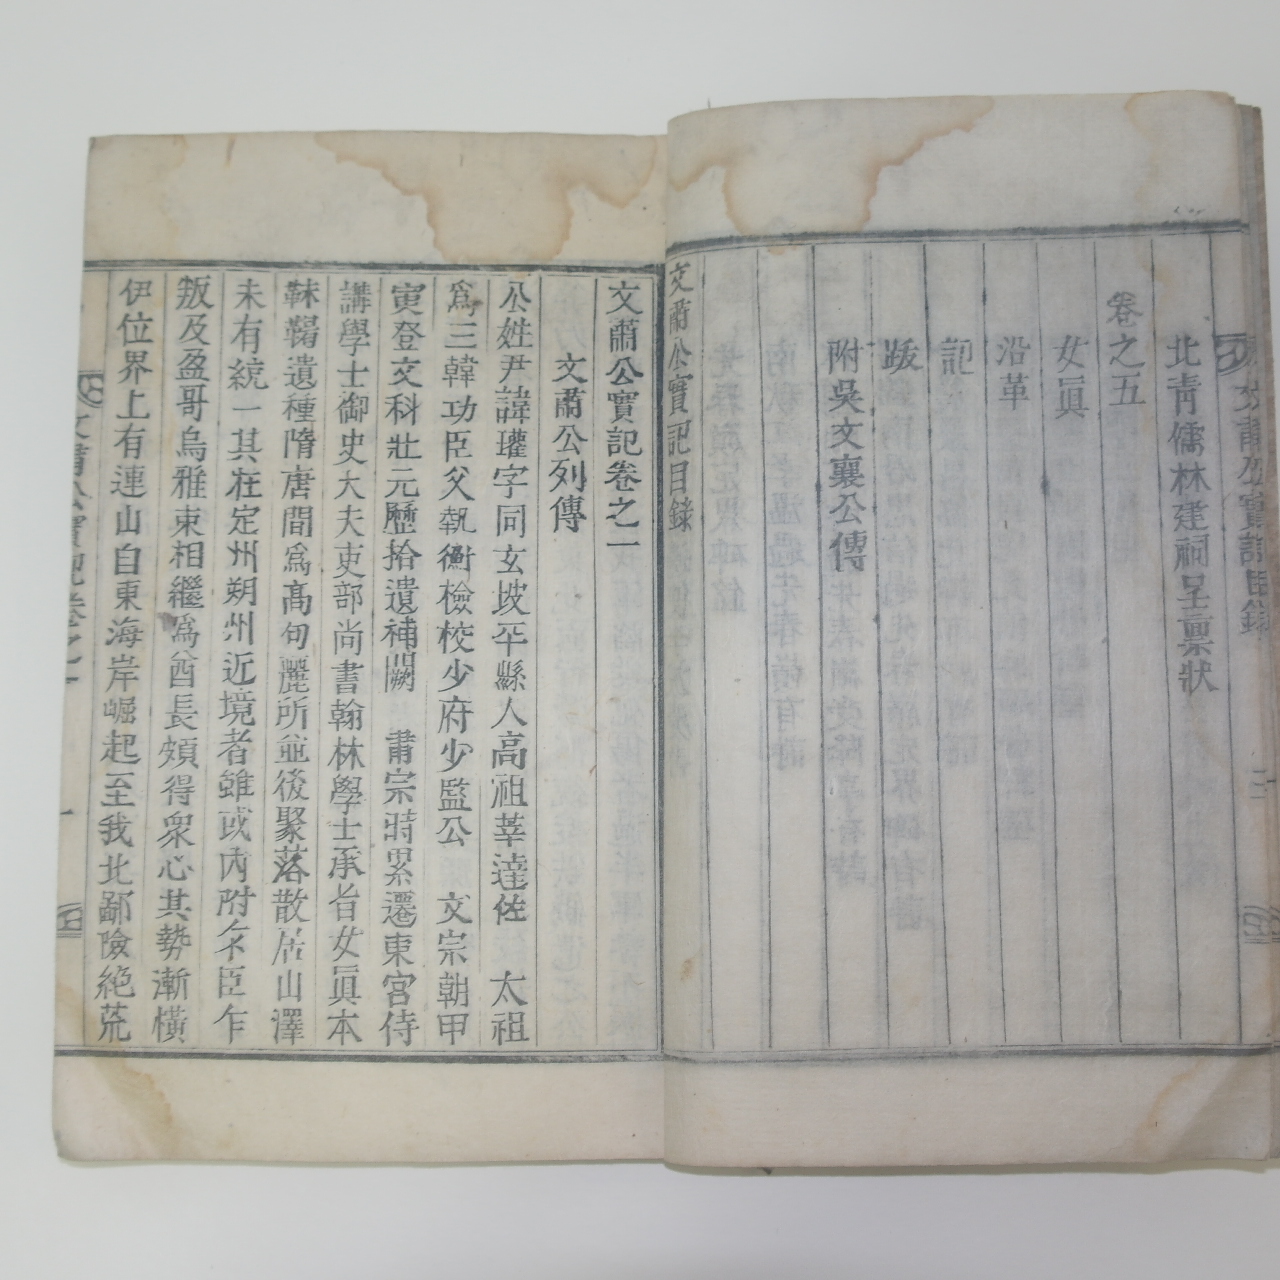 文肅公實記目錄
北靑儒林建祠呈稟狀
卷之五
女眞
沿革
記
跋
附吳文襄公傳
文肅公實記目録
文肅公實記卷之一
文肅公列傳
公姓尹諱瓘字同玄坡平縣人高祖莘達佐 太祖
爲三韓功臣父執衡檢校少府少監公 文宗朝甲
寅登文科壯元歷拾遺補闕 肅宗時累遷東宮侍
講學士御史大夫吏部尚書翰林學士承旨女眞本
靺鞨遺種隋唐間爲高句麗所並後聚落散居山澤
未有統一其在定州朔州近境者雖或內附乍臣乍
叛及盈哥烏雅束相繼爲酋長頗得衆心其勢漸橫
伊位界上有連山自東海岸崛起至我北鄙險絶荒
文肅公實記卷之一
一